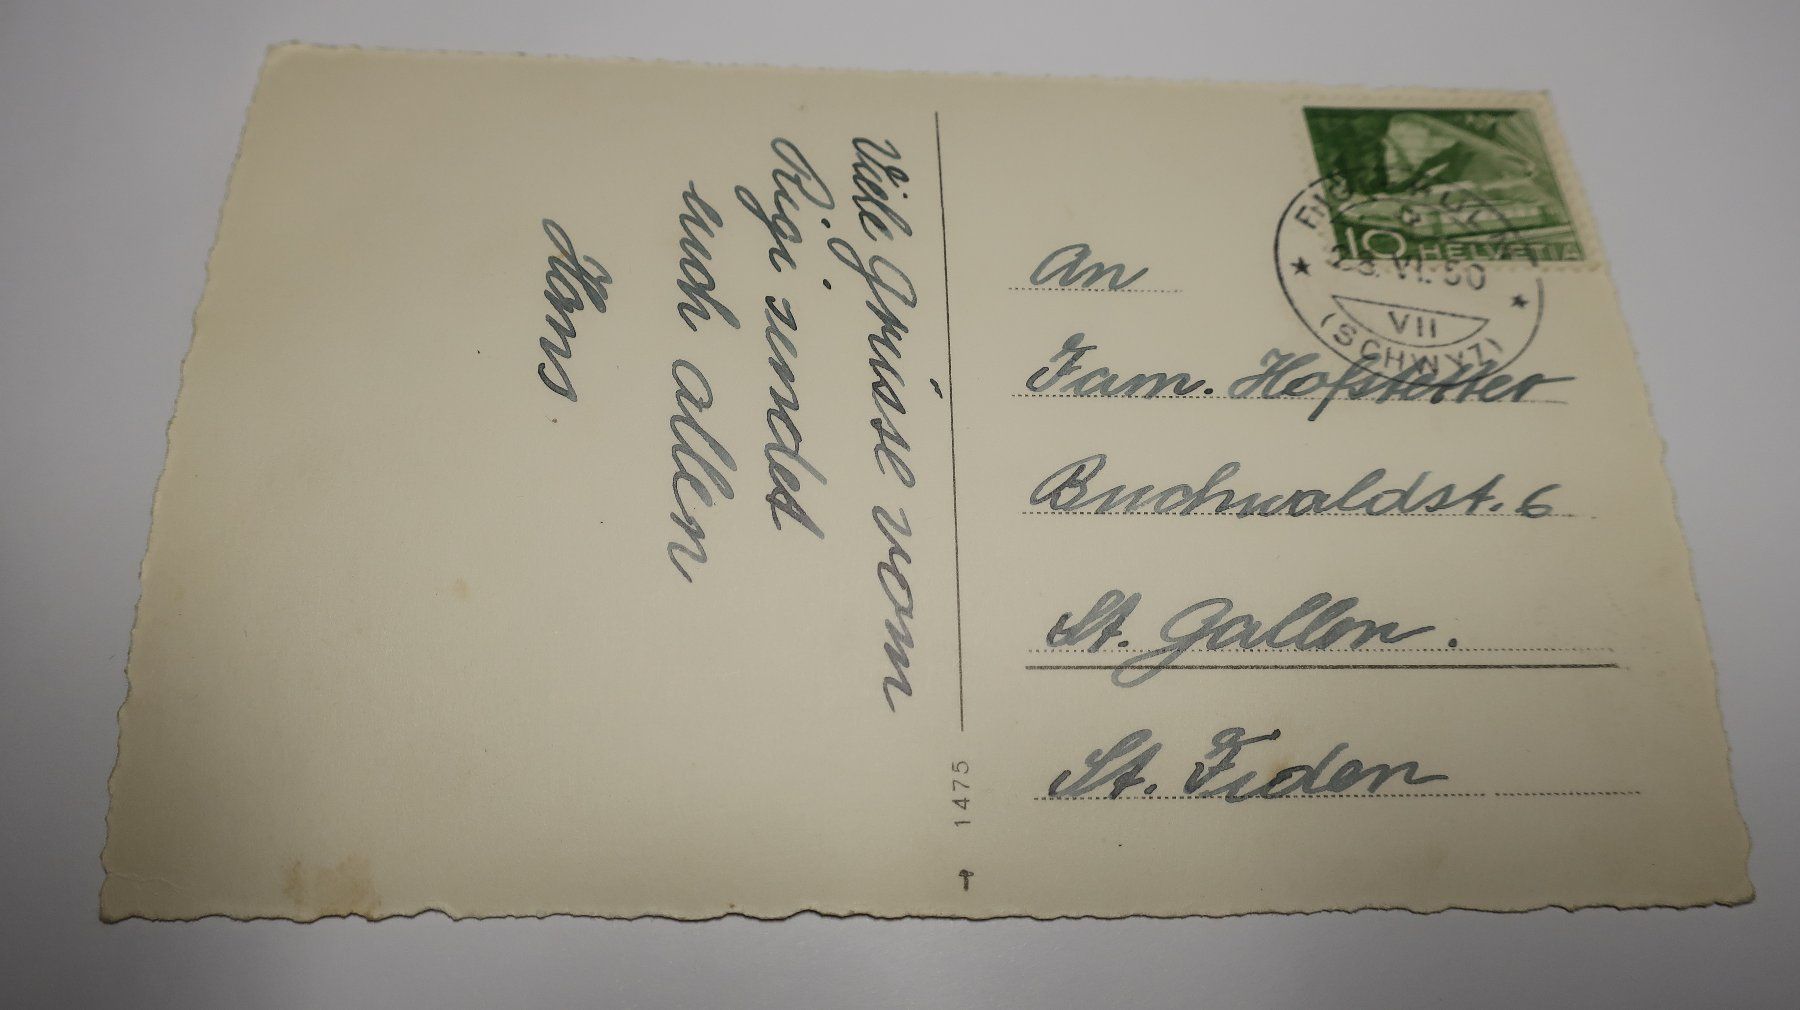 Viele Grüsse vom
Rigi. sendet
euch allen
Hans
1475
10 HELVETIA
VI. 50
VII
(SCHWYZ)
An
Fam. Hofstetter
Buchwaldst. 6
St. Gallen.
St. Fiden